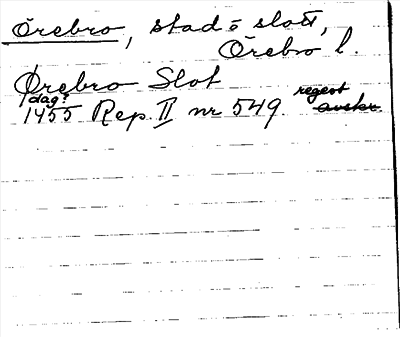 Örebro, stad o slott,
Örebro l.
Örebro Slot
dag?
1455 Rep. II nr 549. regest
avskr.